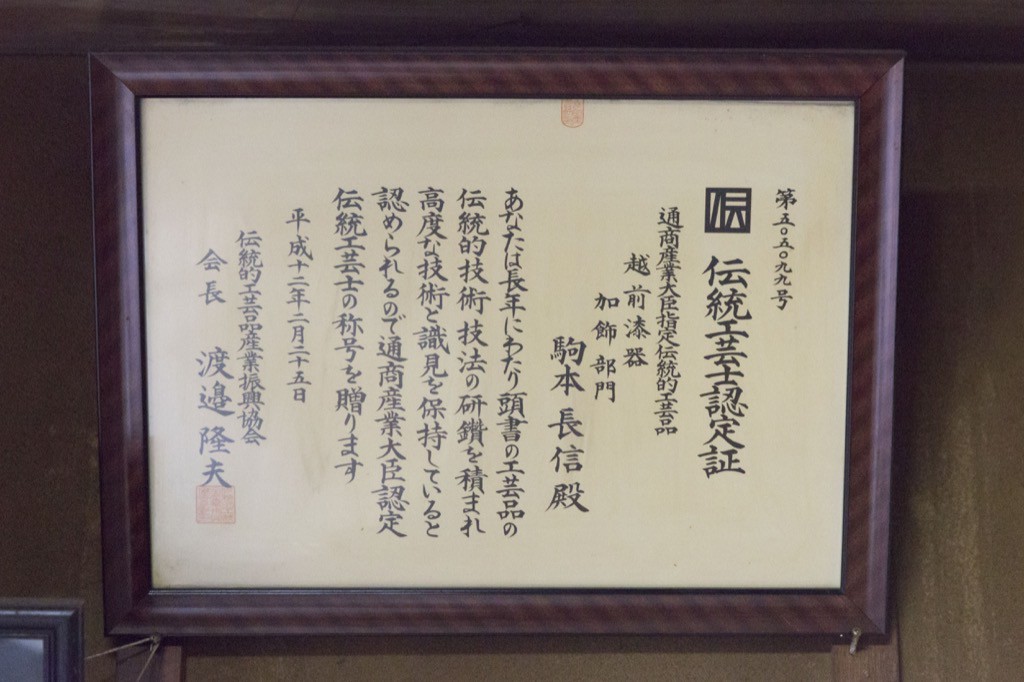 第五〇五〇九九号
伝
伝統工芸士認定証
通商産業大臣指定伝統的工芸品
越前漆器
加飾部門
駒本長信殿
あなたは長年にわたり頭書の工芸品の
伝統的技術技法の研鑽を積まれ
高度な技術と識見を保持していると
認められるので通商産業大臣認定
伝統工芸士の称号を贈ります
平成十二年二月二十五日
伝統的工芸品産業振興協会
会長 渡邉隆夫